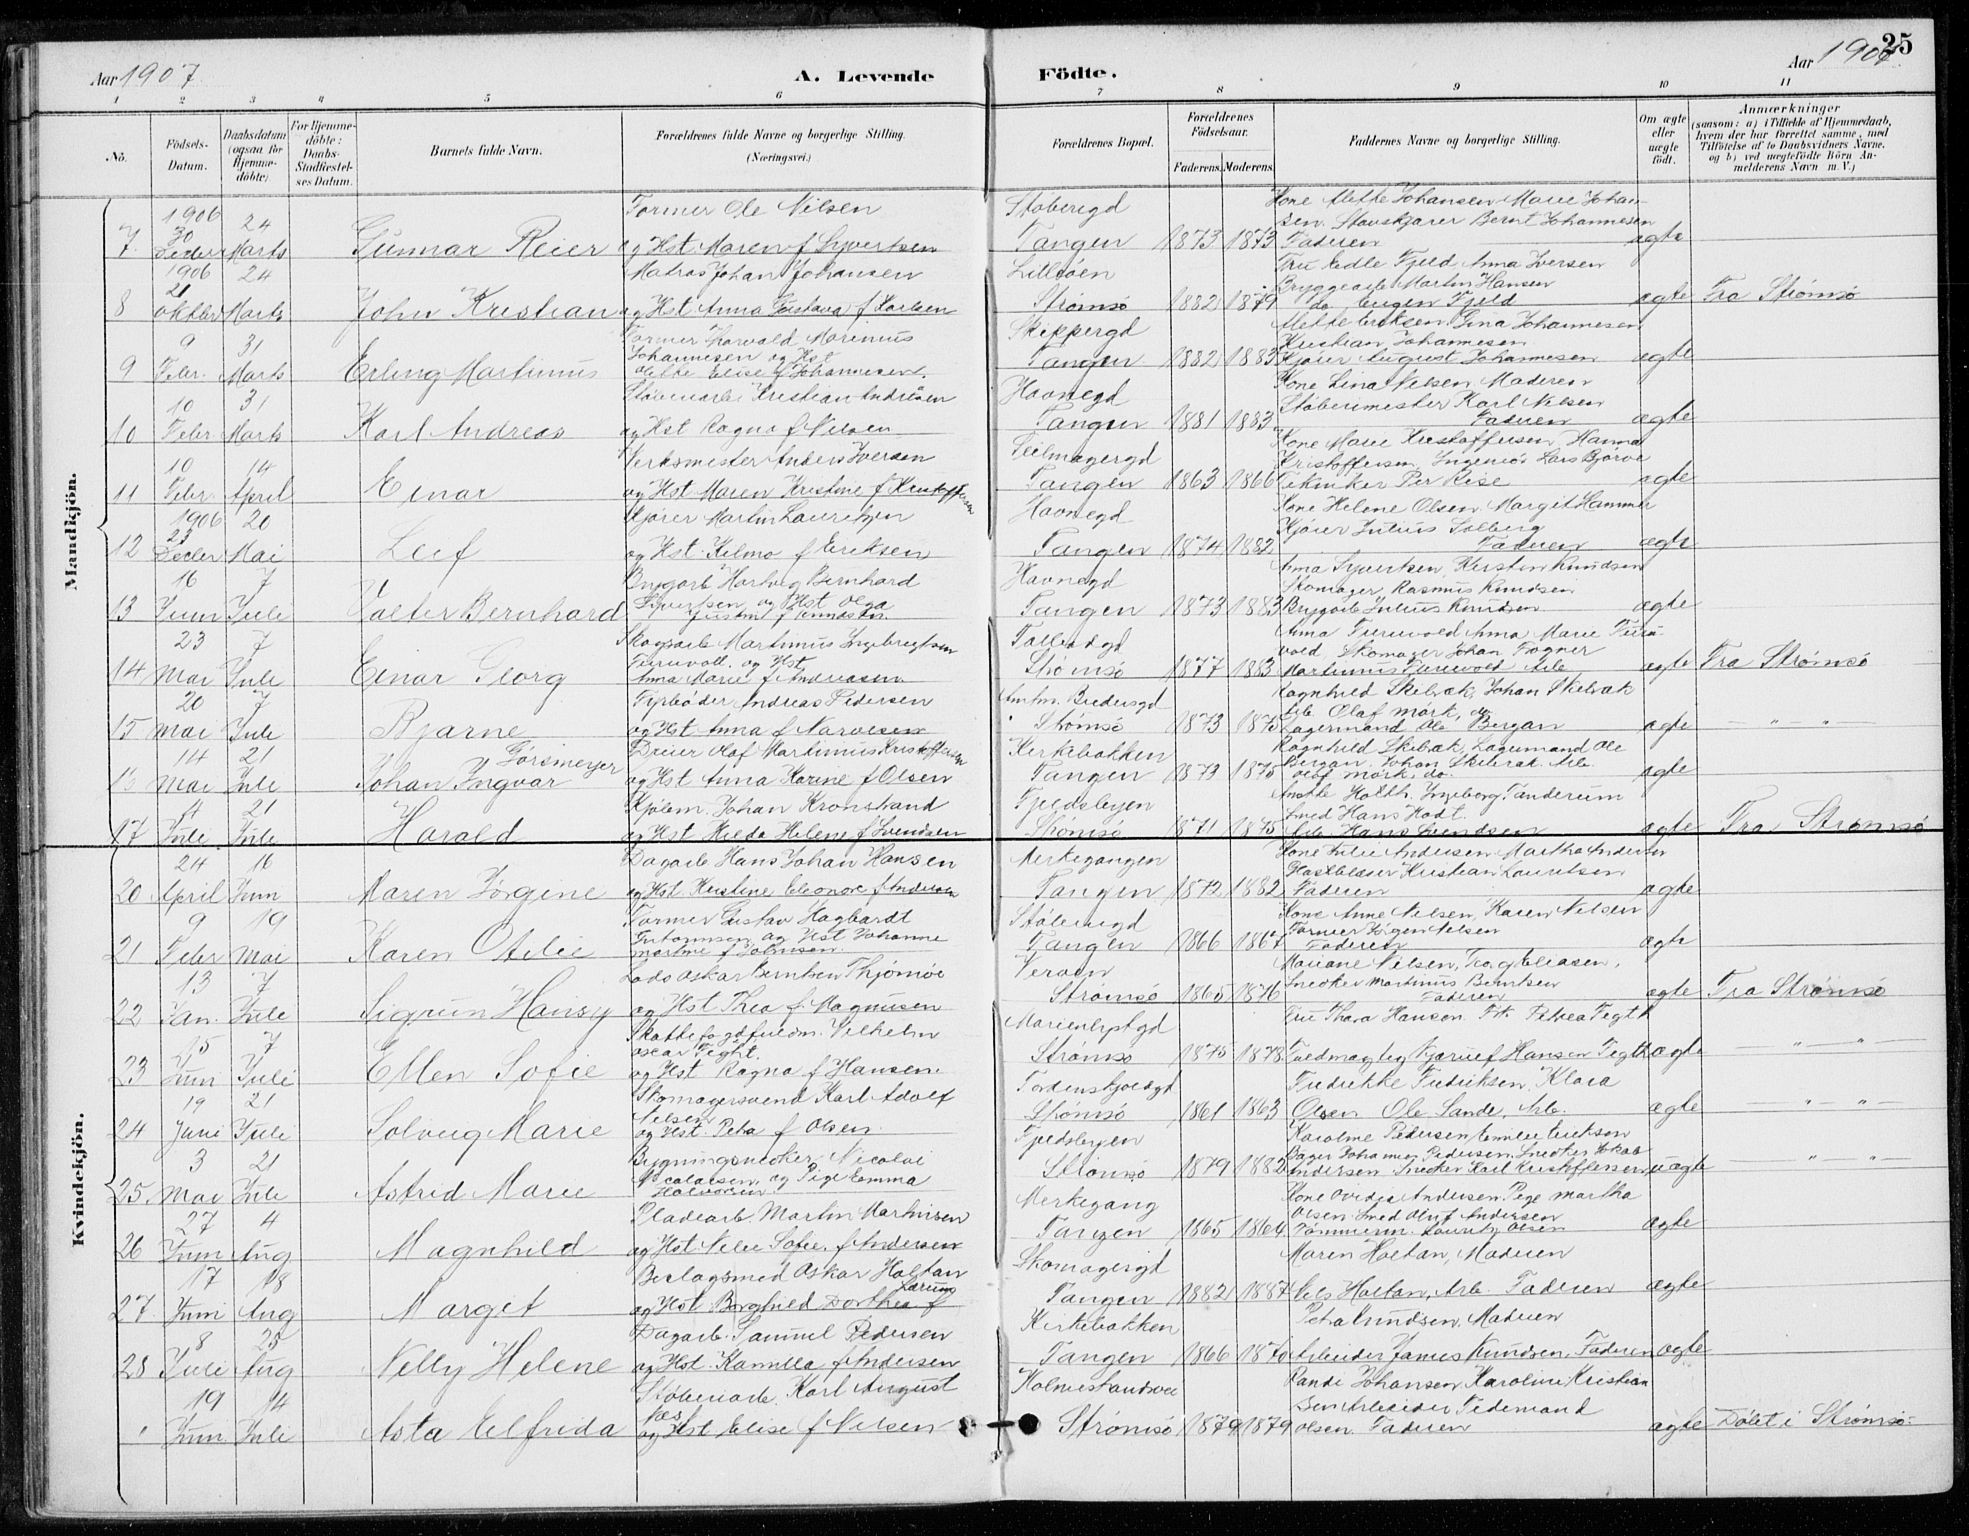 Aar 1907.
A. Levende Födte.
Aar 1907.
25
1 2 3 4 5 6 7 8 9 10 11
No.
Födsels-Datum.
Daabsdatum (ogsaa for Hjemme-döbte).
For Hjemme-döbte: Daabs-Stadfæstel-ses Datum.
Barnets fulde Navn.
Forældrenes fulde Navne og borgerlige Stilling. (Næringsvei.)
Forældrenes Bopæl.
Forældrenes Födselsaar.
Faderens. Moderens.
Faddernes Navne og borgerlige Stilling.
Om ægte eller uægte födt.
Anmærkninger
(saasom: a) i Tilfælde af Hjemmedaab, hvem der har forrettet samme, med Tilföielse af to Daabsvidners Navne, og b) ved uægtefödte Börn An-melderens Navn m. V.)
Mandkjön.
7. 1906 30 Decbr 24 Marts Gunnar Reier Former Ole Nilsen og Hst. Maren f. Syvertsen Støberigd Tangen 1873 1873 Kone Mette Johansen Marie Johansen Bernt Johannesen Faderen ægte
8 1906 21 Oktbr 24 Marts John Kristian Matros Johan Johansen og Hst Anna Gustava f Karlsen Lilleøen Strømsø 1882 1879 Fru Edle Fjeld Anna Iversen Bryggearb Martin Hansen do Eugen Fjeld ægte Fra Strømsø
9 9 Febr. 31 Marts Erling Martinius Former Thorvald Marinius Johannesen og Hst Mette Elise f Johannesen. Skippergd Tangen 1882 1883 Mette Eriksen Gina Johannesen Kristian Johannesen Kjører August Johannesen ægte
10 10 Febr 31 Marts Karl Andreas Støberiarb. Kristian Andresen og Hst Ragna f Nilsen Havnegd Tangen 1881 1883 Kone Lina Nilsen Moderen Støberimester Karl Nilsen Faderen ægte
11 10 Febr 14 April Einar Verksmester Anders Iversen og Hst Maren Kristine f Kristoffersen Seilmagergd Tangen 1863 1866 Kone Marie Kristoffersen Hanna Kristoffersen Ingeniør Lars Bjørve Tekniker Per Rise ægte
12 1906 23 Decbr 20 Mai Leif Kjører Martin Lauritzen og Hst. Hilma f Eriksen Havnegd Tangen 1874 1882 Kone Helene Olsen Margit Hammer Kjører Julius Solberg Faderen ægte
13 16 Juni 7 Juli Valter Bernhard Brygarb Hartvig Bernhard Syvertsen og Hst Olga Justine f Knudsen Havnegd Tangen 1873 1883 Anna Syvertsen, Kirsten Knudsen Skomager, Rasmus Knudsen Brygarb Julius Knudsen ægte
14 23 Mai 7 Juli Einar Georg Skogsarb Martinius Ingebrigtsen Furuvold. og Hst. Anna Marie f Andreasen Tollbodgd Strømsø 1877 1883 Anna Furuvold Anna Marie Furuvold Skomager Johan Fogner Martinius Furuvold Arb. ægte Fra Strømsø
15 20 Mai 7 Juli Bjarne Fyrbøder Andreas Pedersen og Hst Anna f Narvesen Amtm. Bredersgd Strømsø 1873 1875 Ragnhild Skibræk, Johan Skibræk Arb. Olaf Mørk, do Lagermand Ole Bergan ægte — " — " —
16 14 Mai 21 Juli Johan Ingvar Gørsmeyer Dreier Olaf Martinius Kristoffersen og Hst Anna Karine f Olsen Kirkebakken Tangen 1873 1875 Ragnhild Skibræk, Lagermand Ole Bergan. Johan Skibræk Arb. Olaf Mørk. do. ægte
17 4 Juli 21 Juli Harald Kjølem. Johan Kronstrand og Hst Hilda Helene f Svendsen Fjeldsbyen Strømsø 1871 1875 Anette Holth, Ingeborg Tanderum Smed Hans Hodt. Arb. Hans Svendsen ægte Fra Strømsø
Kvindekjön.
20 24 April 16 Juni Maren Jørgine Dagarb Hans Johan Hansen og Hst. Kristine Eleonore f Andersen Merkegangen Tangen 1872 1882 Kone Julie Andersen Martha Andersen Glasblæser Kristian Lauritsen Faderen ægte
21 9 Febr 19 Mai Karen Otelie Former Gustav Hagbardt Guttormsen og Hst Johanne Martine f Johnsen Støberigd Tangen 1866 1867 Kone Anne Nilsen, Karen Nilsen Former Jørgen Nilsen Faderen ægte
22 13 Jan. 7 Juli Sigrun Hansy Lods Oskar Berntsen Thjømøe og Hst Thea f Magnusen Veraen Strømsø 1865 1876 Mariane Nilsen, Eliasen, Snedker Martinius Berntsen Faderen ægte Fra Strømsø
23 15 Juni 7 Juli Ellen Sofie Skattefogdfuldm. Vilhelm Oscar Teght. og Hst Ragna f Hansen Marienlystgd Strømsø 1875 1878 Fru Thora Hanson Frk Petrea Tegth Fuldmægtig Hansen Tegth ægte — " — " —
24 19 Juni 21 Juli Solveig Marie Skomagersvend Karl Adolf Nilsen og Hst. Petra f Olsen. Tordenskjoldsgd Strømsø 1861 1863 Fredrikke Fredriksen, Klara Olsen Ole Sande, Arb. ægte — " — " —
25. 3 Mai 21 Juli Astrid Marie Bygningssnedker Nicolai Nicolaisen og Pige Emma Halvorsen Fjeldsbyen Strømsø 1879 1882 Karoline Pedersen Emilie Eriksen Bager Johannes Pedersen, Snedker Jakob Andersen Snedker Karl Kristoffersen uægte " — " —
26 27 Juni 4 Aug Magnhild Pladearb. Martin Martinsen og Hst Nilie Sofie. f Andersen Merkegang Tangen 1865 1864 Kone Ovidia Andersen Pige Martha Olsen Smed Oluf Andersen Tømmerm. Lauritz Olsen ægte
27. 17 Juni 18 Aug Margit Beslagsmed Oskar Holtan og Hst Borghild Dorthea f Larsen Skomagergd Tangen 1882 1887 Maren Holtan, Moderen Nils Holtan, Arb. Faderen ægte
28 8 Juli 25 Aug Nelly Helene Dagarb. Samuel Pedersen og Hst. Kamilla f Andersen Kirkebakken Tangen 1866 1870 Petra Knudsen, Moderen Arbeider James Knudsen. Faderen ægte
19 Juni 14 Juli Asta Elfrida Støberiarb. Karl August Næs og Hst Elise f Nilsen Holmestrandsvei Strømsø 1879 1879 Randi Johansen Karoline Kristiansen Arbeider Tidemand Olsen Faderen ægte Døbt i Strømsø